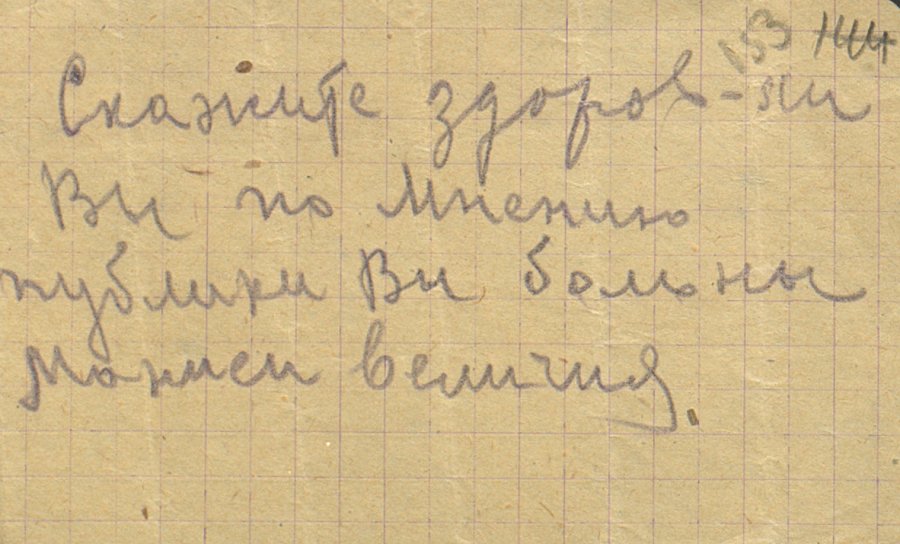 153
Скажите здоров-ли
Вы по мнению
публики Вы больны
Манией величия.